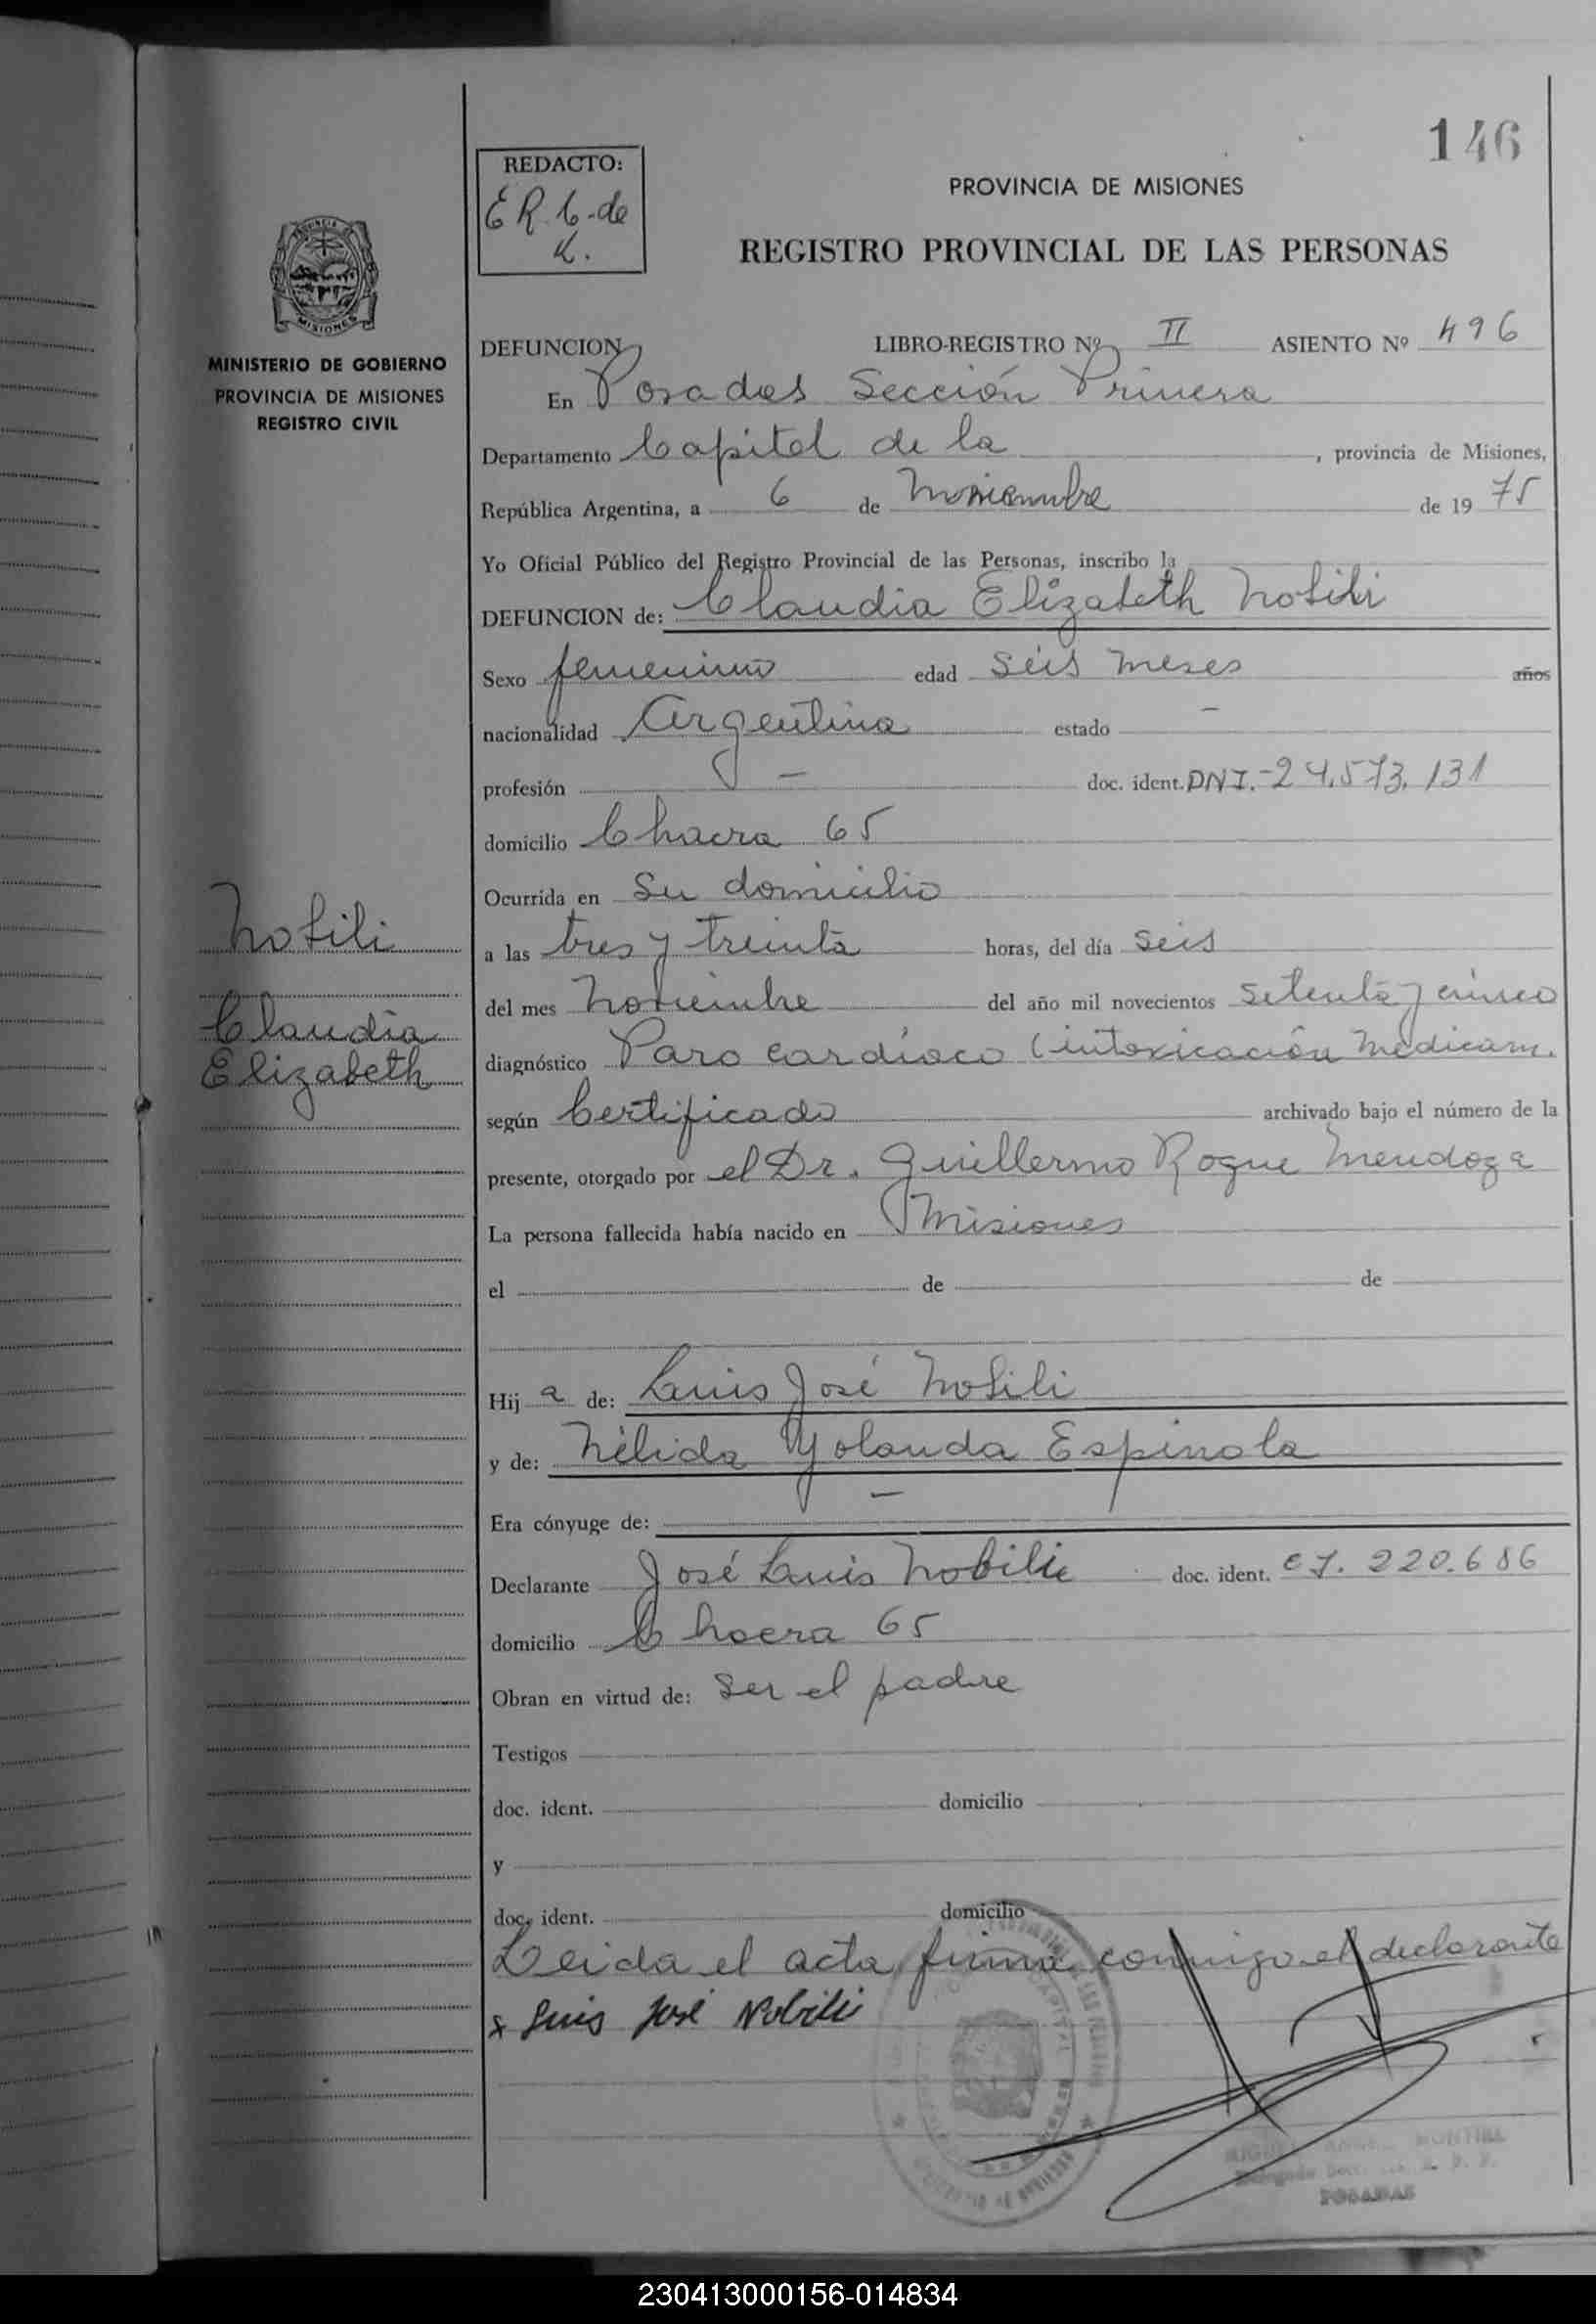 146
REDACTO:
E R. C. de
K.
PROVINCIA DE MISIONES
REGISTRO PROVINCIAL DE LAS PERSONAS
MISIONES
MINISTERIO DE GOBIERNO
PROVINCIA DE MISIONES
REGISTRO CIVIL
DEFUNCION LIBRO-REGISTRO Nº II ASIENTO Nº 496
En Posadas Sección Primera
Departamento Capital de la , provincia de Misiones,
República Argentina, a 6 de Noviembre de 19 75
Yo Oficial Público del Registro Provincial de las Personas, inscribo la
DEFUNCION de: Claudia Elizabeth Nobili
Sexo femenino edad seis meses años
nacionalidad Argentina estado —
profesión — doc. ident. DNI.-24.573.131
domicilio Chacra 65
Ocurrida en Su domicilio
a las tres y treinta horas, del día seis
del mes Noviembre del año mil novecientos setenta y cinco
diagnóstico Paro cardíaco (intoxicación medicam.
según Certificado archivado bajo el número de la
presente, otorgado por el Dr. Guillermo Roque Mendoza
La persona fallecida había nacido en Misiones
el de de
Hij a de: Luis José Nobili
y de: Nélida Yolanda Espinola
Era cónyuge de: —
Declarante José Luis Nobili doc. ident. CI. 220.686
domicilio Chacra 65
Obran en virtud de: Ser el padre
Testigos
doc. ident. domicilio
y
doc. ident. domicilio
Leida el acta, firma conmigo el declarante
x Luis José Nobili
Nobili
Claudia
Elizabeth
MONTIEL
POSADAS
230413000156-014834